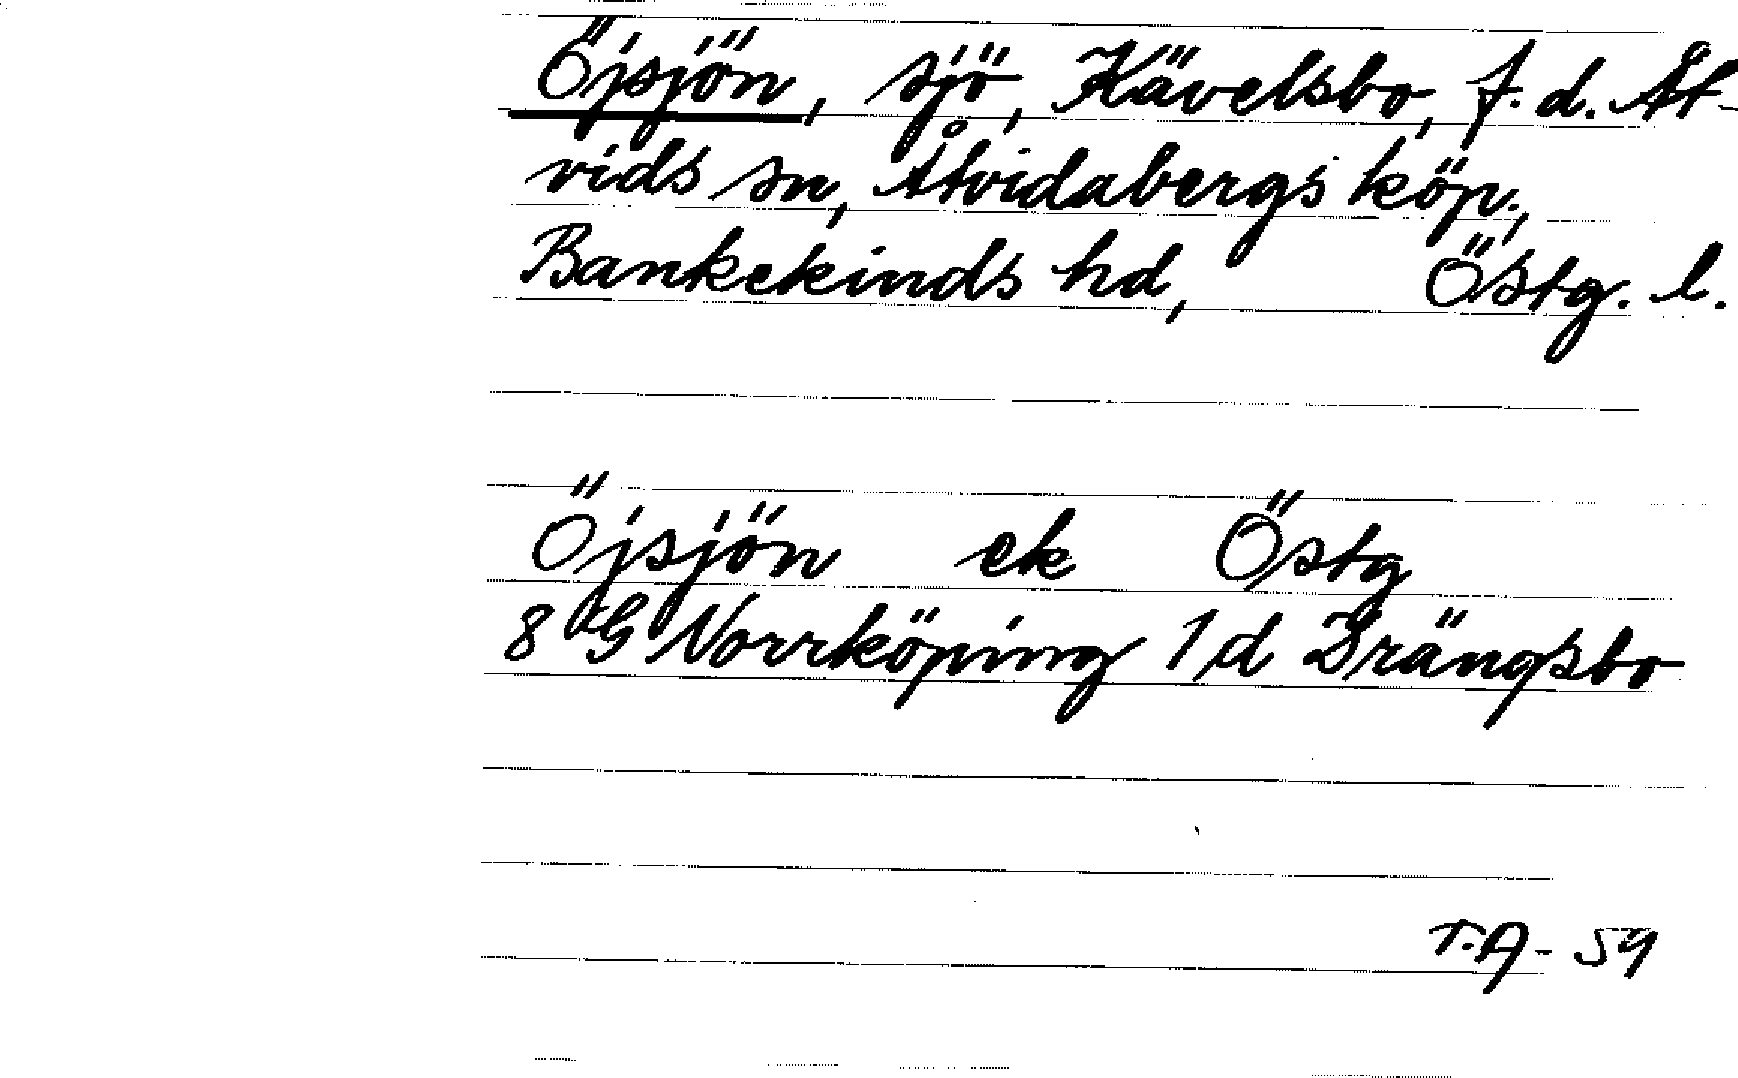 Öjsjön, sjö, Kävelsbo, f.d. Åt-
vids sn, Åtvidabergs köp.,
Bankekinds hd, Östg. l.
Öjsjön ek Östg
8 G Norrköping 1 d Drängsbo
T.A- 59